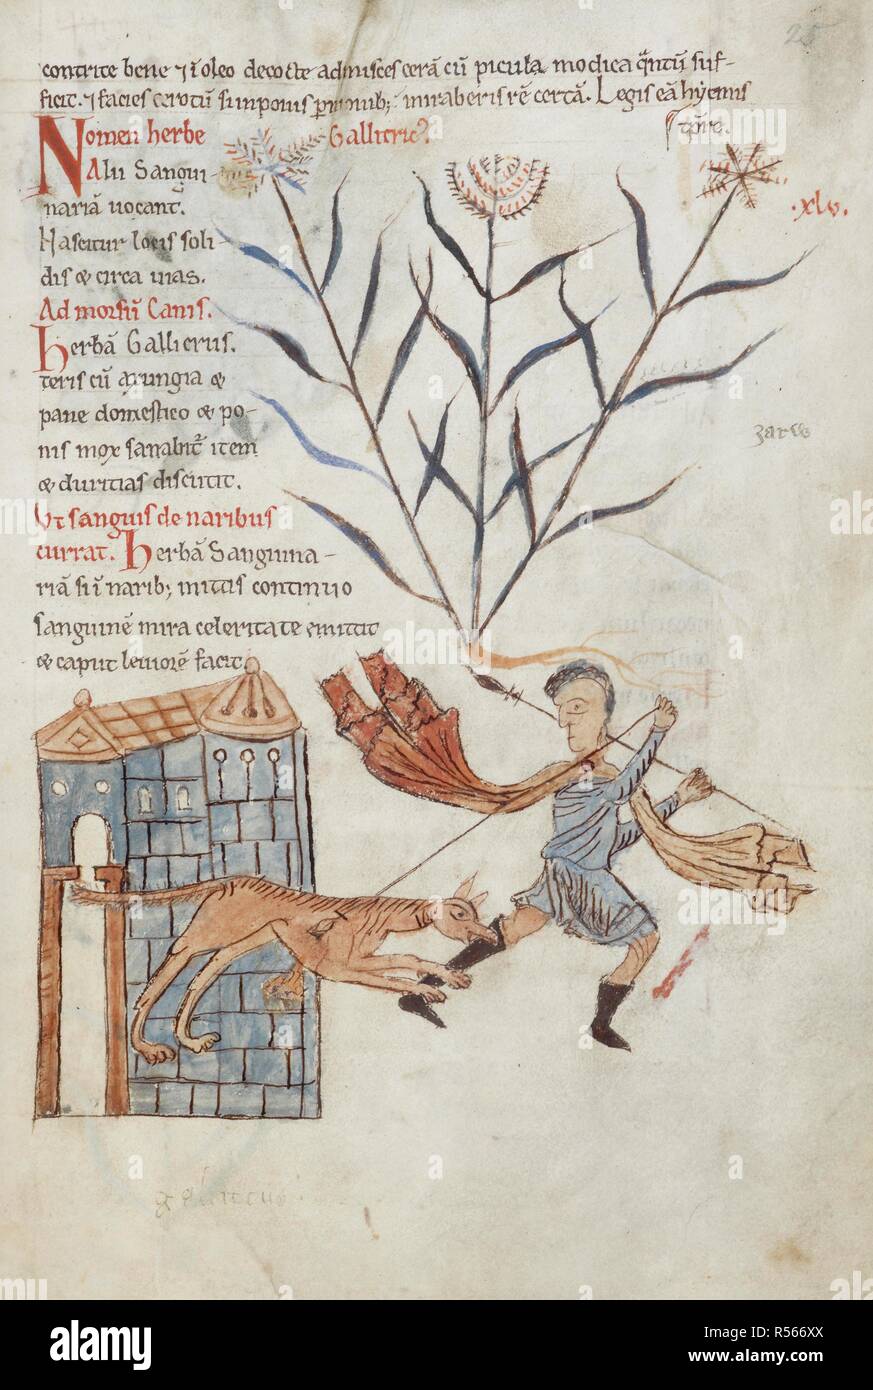 25
contrite bene ⁊ ī oleo decocte admisces cerā cū picula modica q̄ntū suf-
ficit. ⁊ facies cerotū ⁊ inponis miraberis rē certā. Legis eā hyemis
tp̄re.
Nomen herbe Gallitric᷒.
Alii Sangui-
nariā uocant. .xlv.
Nascitur locis soli-
dis & circa uias.
Ad morsū Canis.
Herbā Gallicrus.
teris cū axungia &
pane domestico & po-
nis mox sanabit᷑ item
& duritias discutit.
Ut sanguis de naribus
currat. Herbā Sanguina-
riā si ī narib; mittis continuo
sanguinē mira celeritate emittit
& caput leuiorē facit.
alamy
Image ID: R566XX
www.alamy.com